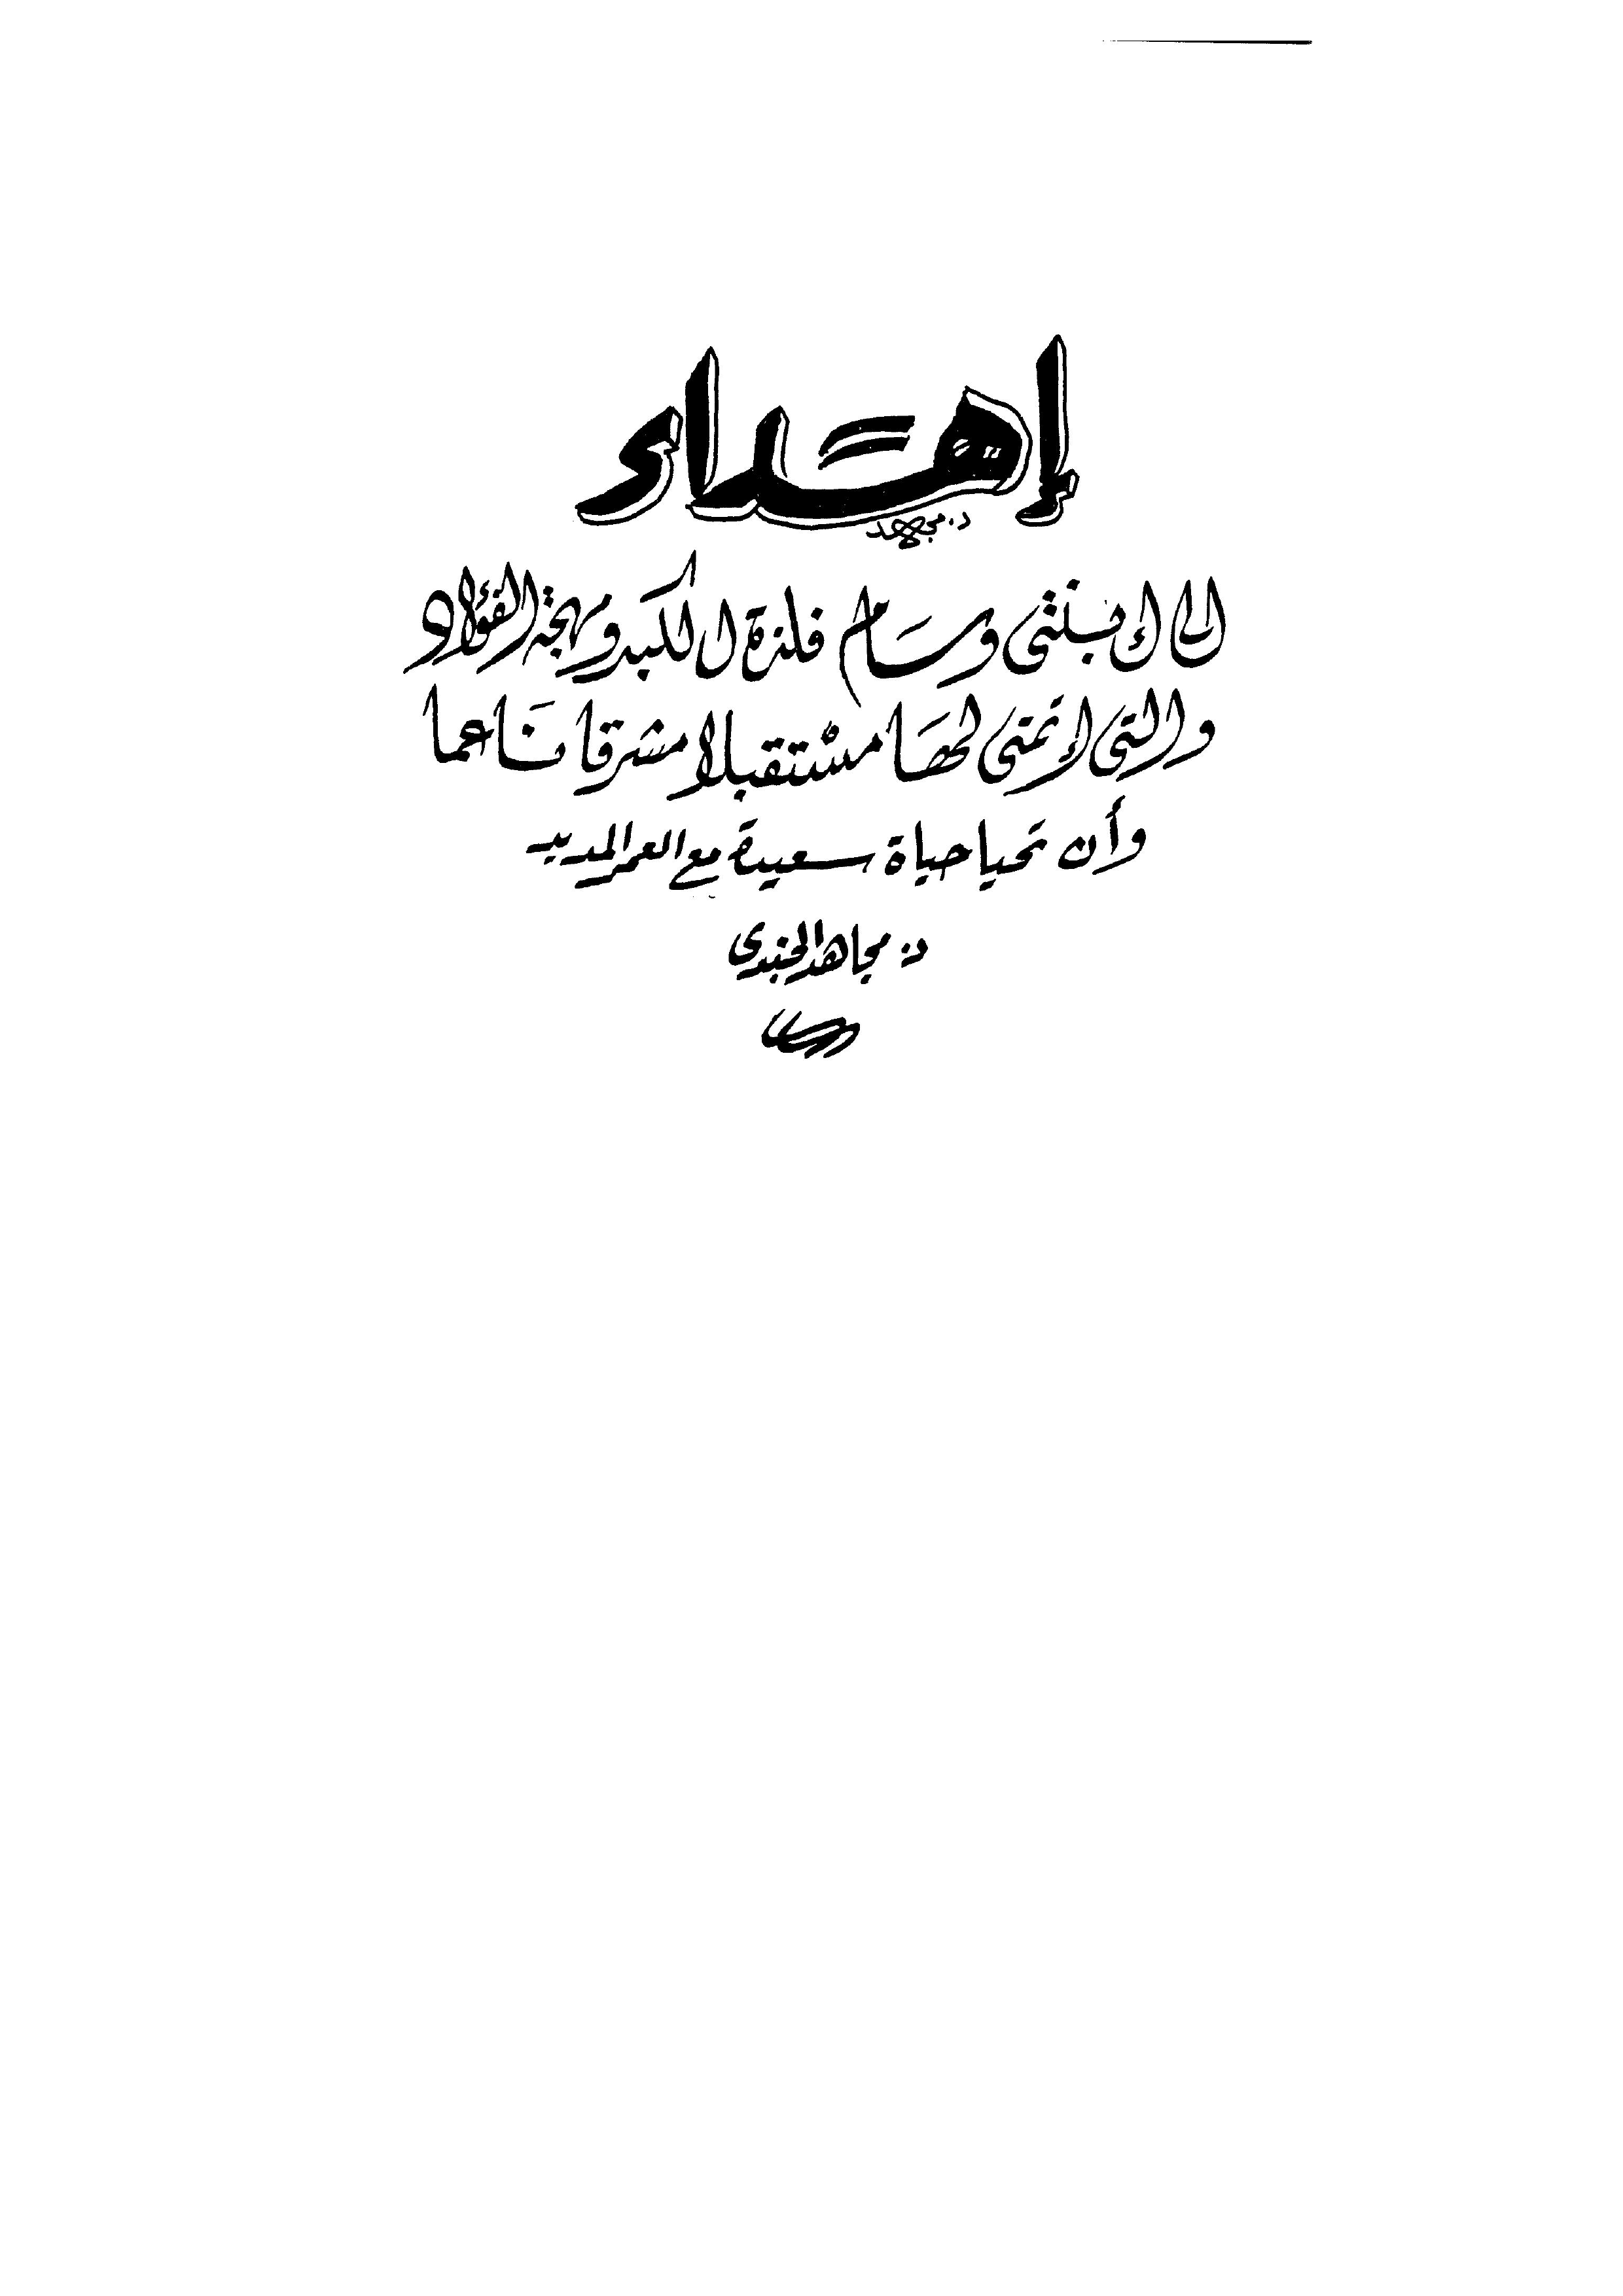 إهداء
د. مجاهد
إلى ابنتى وسام فلذة الكبد ومهجة الفؤاد
والتى أتمنى لها مستقبلا مشرقا ناعما
وأن تحيا حياة سعيدة مع العمر المديد
د. مجاهد الجندى